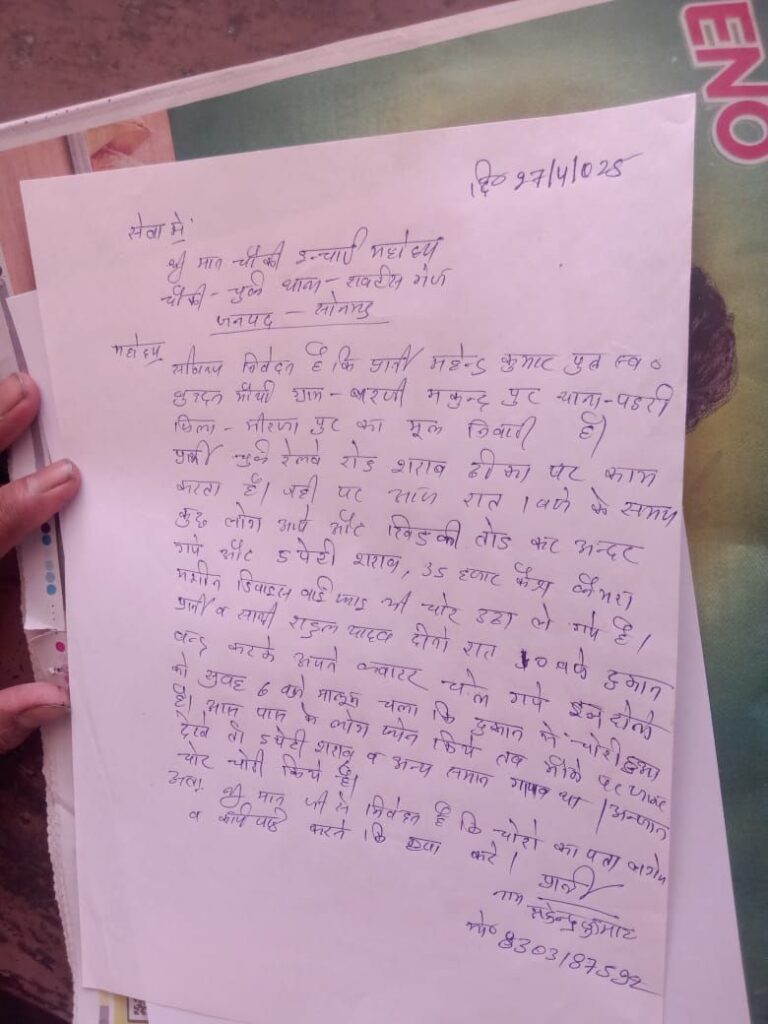 ENO
दि० 27/4/025
सेवा में
श्री मान चौकी इन्चार्ज महोदय
चौकी - चुर्क थाना - राबर्टस गंज
जनपद - सोनभद्र
महोदय
सविनय निवेदन है कि प्रार्थी महेन्द्र कुमार पुत्र स्व०
मौर्या ग्राम - मकुन्द पुर थाना - पडरी
जिला - मीरजा पुर का मूल निवासी है।
प्रार्थी चुर्क रेलवे रोड शराब ठीका पर काम
करता है। जहाँ पर आज रात 1 बजे के समय
कुछ लोग आये और खिडकी तोड कर अन्दर
गये और 5 पेटी शराब, 35 हजार कैश कैमरा
मशीन डिवाइस वाई फाई भी चोर उठा ले गये है।
प्रार्थी व साथी राहुल यादव दोनो रात 10 बजे दुकान
बन्द करके अपने क्वाटर चले गये हम दोनो
को सुबह 6 बजे मालूम चला कि दुकान में चोरी हुआ
है। आस पास के लोग फोन किये तब मौके पर जाकर
देखे तो 5 पेटी शराब व अन्य समान गायब था। अन्जान
चोर चोरी किये है।
अतः श्री मान जी से निवेदन है कि चोरो का पता लगाने
व कार्यवाही करने कि कृपा करे।
प्रार्थी
नाम महेन्द्र कुमार
मो० 8303187592